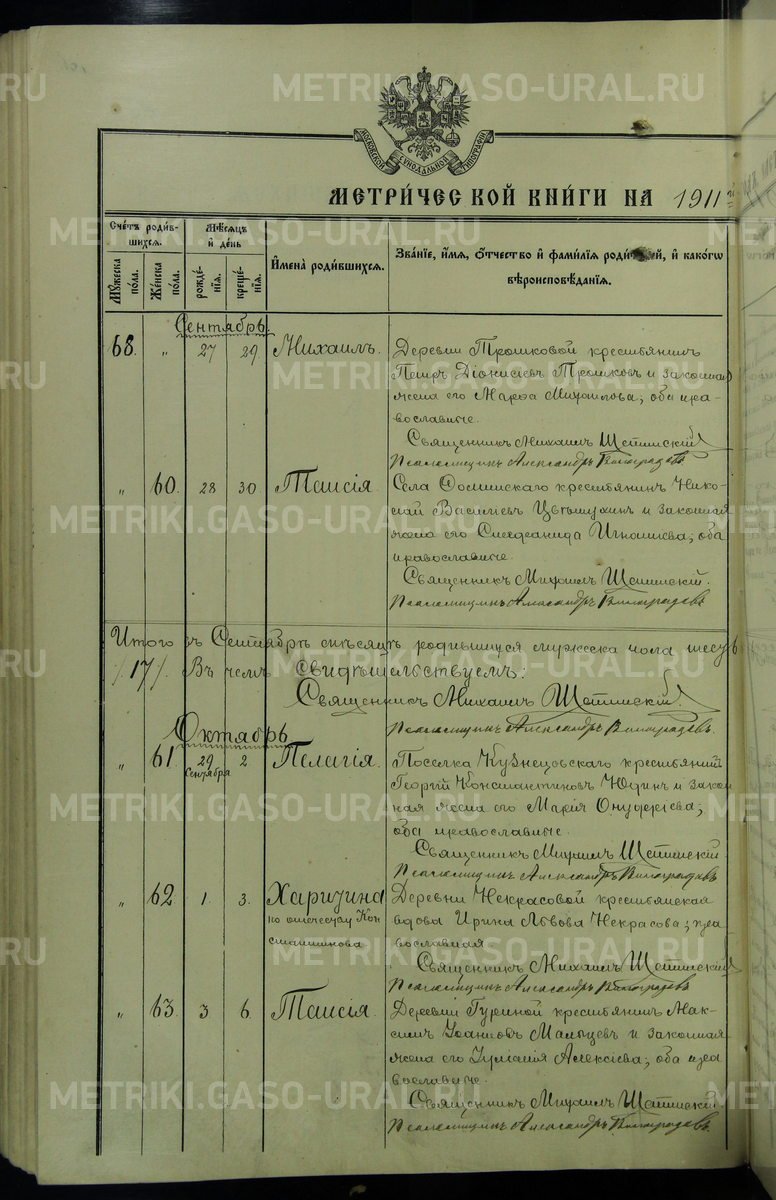 МОСКОВСКОЙ СѴНОДАЛЬНОЙ ТИПОГРАФІИ
МЕТРИ́ЧЕСКОЙ КНИ́ГИ НА 1911
Сче́тъ роди́в-
шихся.
Му́жеска по́ла.
Же́нска по́ла.
Мѣ́сяцъ и де́нь
рожде́-
нія.
креще́-
нія.
И҆мена̀ роди́вшихся.
Зва́ніе, и҆́мя, ѻ҆́тчество и҆ фами́лія роди́ ей, и҆ како́гѡ
вѣроисповѣ́данія.
Сентябрь.
68. " 27 29 Михаилъ.
Деревни Трошковой крестьянинъ
Петръ Діонисіевъ Трошковъ и законная
жена его Марѳа Михаилова; оба пра-
вославные.
Священникъ Михаилъ
Псаломщикъ Александръ Виноградовъ
" 60. 28 30. Таисія.
Села крестьянинъ Нико-
лай Василіевъ и законная
жена его Игнатіева; оба
православные.
Священникъ Михаилъ
Псаломщикъ Александръ Виноградовъ
Итого въ Сентябрѣ мѣсяцѣ родившихся мужеска пола
/17/. Въ чемъ Свидѣтельствуемъ:
Священникъ Михаилъ
Псаломщикъ Александръ Виноградовъ.
Октябрь
" 61 29 Сентября 2 Пелагія.
Поселка Кузнецовскаго крестьянинъ
Георгій Константиновъ Юдинъ и закон
ная жена его Марія Онуфріева;
оба православные.
Священникъ Михаилъ
Псаломщикъ Александръ Виноградовъ
" 62 1. 3. Харитина
по отечеству Кон
стантинова
Деревни Некрасовой крестьянская
вдова Ирина Львова Некрасова; пра
вославная
Священникъ Михаилъ
Псаломщикъ Александръ Виноградовъ
" 63. 3 6. Таисія.
Деревни Гуриной крестьянинъ Мак-
симъ Іоанновъ Мальцевъ и законная
жена его Іуліанія Алексіева; оба пра
вославные.
Священникъ Михаилъ
Псаломщикъ Александръ Виноградовъ.
METRIKI.GASO-URAL.RU